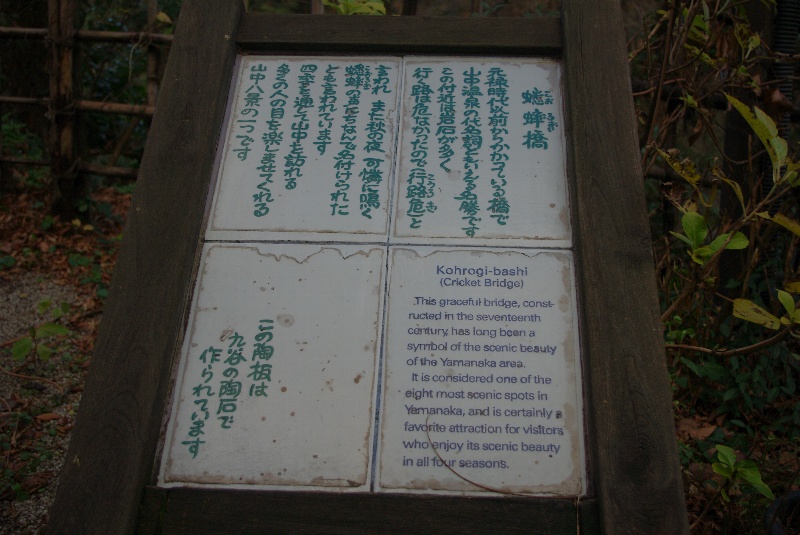 蟋蟀橋
こおろぎ
元禄時代以前からかかっている橋で
山中温泉の代名詞ともいえる名勝です
この付近は岩石が多く
行く路は危なかったので(行路危)と
こうろき
言われ また秋の夜 可憐に鳴く
蟋蟀の声にちなんで名付けられた
こおろぎ
とも言われています
四季を通して山中を訪れる
多くの人の目を楽しませてくれる
山中八景の一つです
この陶板は
九谷の陶石で
作られています
Kohrogi-bashi
(Cricket Bridge)
This graceful bridge, const-
ructed in the seventeenth
century, has long been a
symbol of the scenic beauty
of the Yamanaka area.
It is considered one of the
eight most scenic spots in
Yamanaka, and is certainly a
favorite attraction for visitors
who enjoy its scenic beauty
in all four seasons.